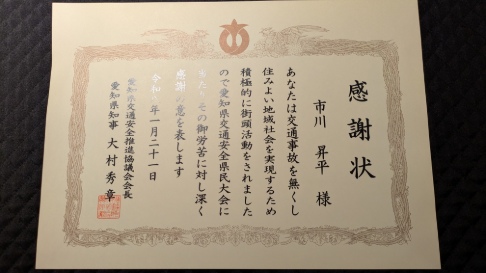 感謝状
市川 昇平 様
あなたは交通事故を無くし
住みよい地域社会を実現するため
積極的に街頭活動をされました
ので愛知県交通安全県民大会に
当たりその御労苦に対し深く
感謝の意を表します
令和 年一月二十一日
愛知県交通安全推進協議会会長
愛知県知事 大村秀章